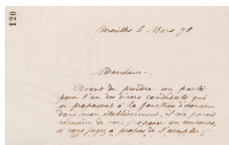 120
Bruxelles 2 Mars 78
Monsieur.
Avant de prendre un parti
pour l'un des divers candidats qui
se proposent à la fonction d'économe
dans mon établissement, il me paraît
nécessaire de vous proposer un concours,
si vous jugez à propos de l'accepter